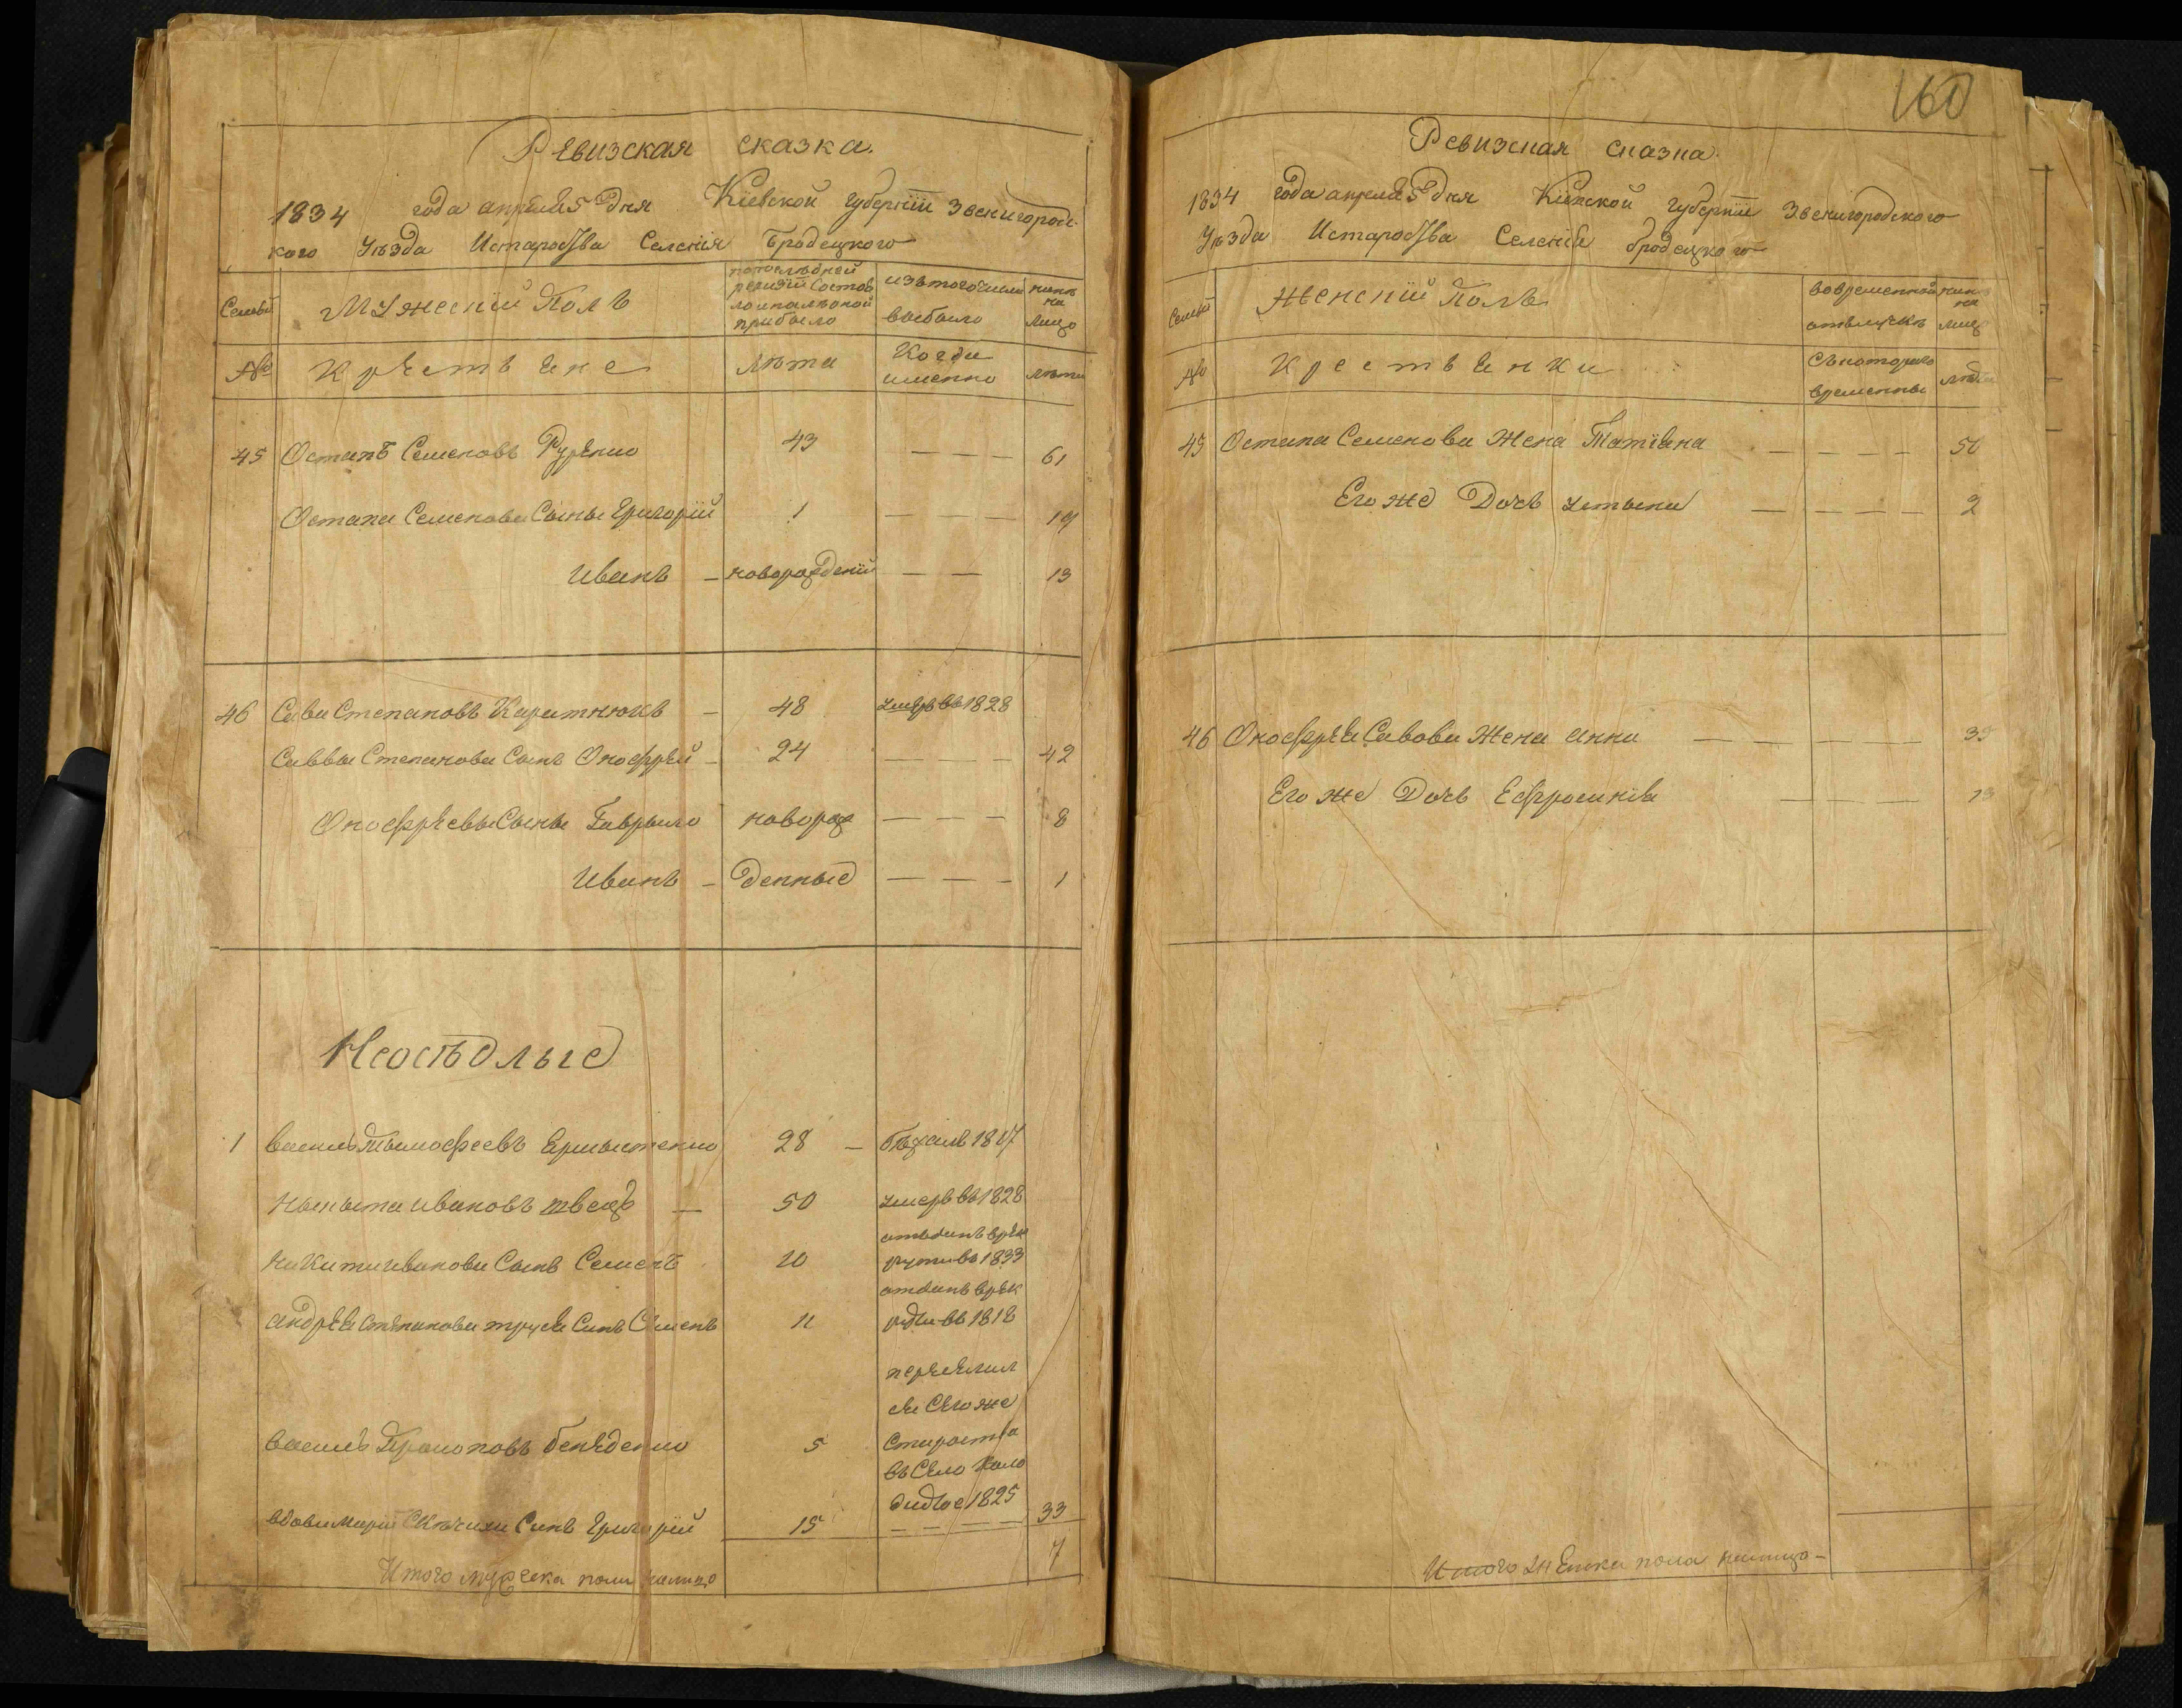 Ревизская сказка.
1834 года апреля 5 дня Кіевской губерніи Звенигородс-
кого Уѣзда Истароства Селенія Бродецкого
Семьи
Мужескій Полъ
попослѣдней
ревизіи состоя
ло и послѣ оной
прибыло
изъ того числа
выбыло
нынѣ
на
лицо
№
Крестьяне
лѣта
Когда
именно
лѣта
45 Остапъ Семеновъ Руденко 43 — — — 61
Остапа Семенова Сыны Григорій 1 — — — 19
Иванъ — новорожденій — — 13
46 Сава Степановъ Каратнюкъ — 48 умеръ въ 1828
Саввы Степанова Сынъ Онофрей — 24 — — — — 42
Онофреевы Сыны Гаврыло новорож — — — — 8
Иванъ — денные — — — 1
Неосѣдлые
1 Василь Тымофеевъ 28 — бѣжалъ 1817
Ныкыта Ивановъ швецъ — 50 умеръ въ 1828
отданъ врек
Никиты Иванова Сынъ Семенъ 20 руты въ 1833
отданъ врек
Андрея Степанова Сынъ Семенъ 11 въ 1818
переселил
ся Сего же
Василь Прокоповъ 5 Староства
въ Село
1825
вдовы Маріи Сынъ Григорій 15 — — — — 33
Итого мужеска пола налицо 7
160
Ревизская сказка.
1834 года апреля 5 дня Кіевской губерніи Звенигородского
Уѣзда Истароства Селенія Бродецкого
Семьи
Женскій Полъ
во временной
отлучкѣ
нынѣ
на
лицо
№
Крестьянки
Съ которого
времени
лѣта
45 Остапа Семенова Жена Татіяна — — — — — 50
Его же Дочь Устына — — — — — 2
46 Онофрея Савова Жена Анна — — — — 39
Его же Дочь Ефросинія — — — — 13
Итого женска пола налицо —